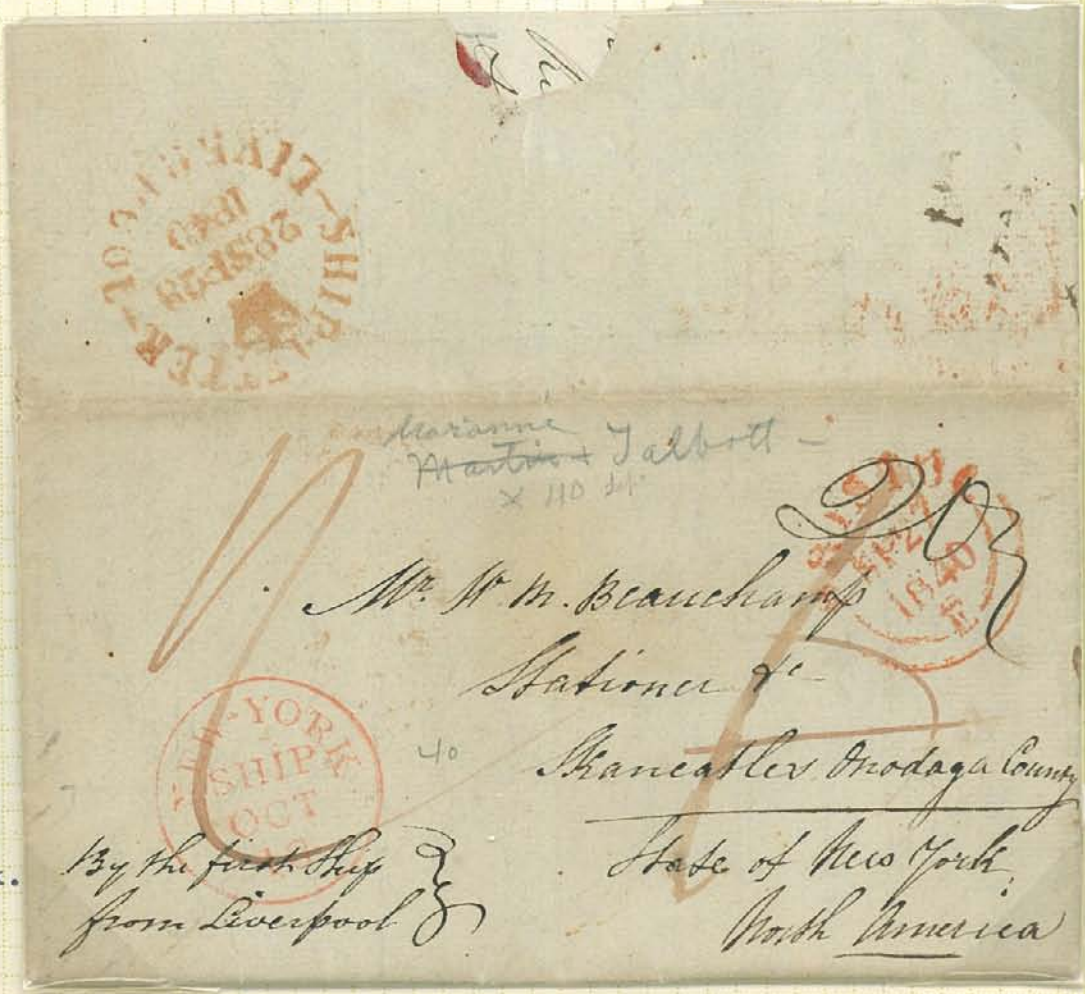 LIVERPOOL-SHIP LETTER-
28SP28
1840
Marianne
Martin + Talbott -
x 40
SP 27
1840
Mr. W. M. Beauchamp
Stationer &c
Skaneatles Onodaga County
State of New York
North America
40
NEW-YORK
SHIP
OCT
By the first Ship
from Liverpool